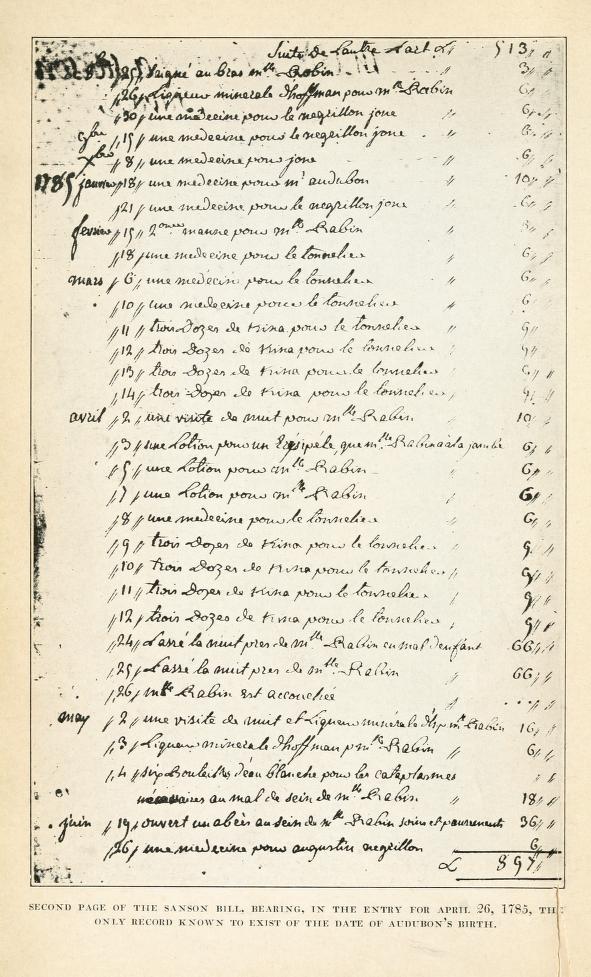 Suite de L'autre Part £ 513 〃
〃 25 〃 Seigné au bras mlle Rabin 〃 3 〃
〃 26 〃 Liqueur minerale dhoffman pour mlle Rabin 6 〃
〃 30 〃 une médecine pour le negrillon joue 〃 6 〃
9bre 〃 15 〃 une médecine pour le negrillon joue 〃 6 〃
Xbre 〃 8 〃 une medecine pour joue 〃 6 〃
1785 janvier 〃 18 〃 une medecine pour mr audubon 〃 10 〃
〃 21 〃 une medecine pour le negrillon joue 〃 6 〃
fevrier 〃 15 〃 manne pour mlle Rabin 〃 3 〃
〃 18 〃 une medecine pour le tonnelier 6 〃
mars 〃 6 〃 une medecine pour le tonnelier 〃 6 〃
〃 10 〃 une medecine pour le tonnelier 〃 6
〃 11 〃 trois Dozes de Kina pour le tonnelier 〃 9 〃
〃 12 〃 trois Dozes de Kina pour le tonnelier 〃 9 〃
〃 13 〃 trois Dozes de Kina pour le tonnelier 〃 9 〃
〃 14 〃 trois Dozes de Kina pour le tonnelier 〃 9 〃
avril 〃 2 〃 une visite de nuit pour mlle Rabin 10 〃
〃 3 〃 une Lotion pour un Erésipéle, que mlle Rabin a à la jambe 6 〃
〃 5 〃 une Lotion pour mlle Rabin 〃 6 〃
〃 7 〃 une Lotion pour mlle Rabin 〃 6 〃
〃 8 〃 une medecine pour le tonnelier 〃 6 〃
〃 9 〃 trois Dozes de Kina pour le tonnelier 〃 9 〃
〃 10 〃 trois Dozes de Kina pour le tonnelier 〃 9 〃
〃 11 〃 trois Dozes de Kina pour le tonnelier 〃 9 〃
〃 12 〃 trois Dozes de Kina pour le tonnelier 〃 9 〃
〃 24 〃 Passé la nuit pres de mlle Rabin en mal d'enfant 66 〃
〃 25 〃 Passé la nuit pres de mlle Rabin 66 〃
〃 26 〃 mlle Rabin est accouchée 〃
may 〃 2 〃 une visite de nuit et Liqueur minérale d'h p mlle Rabin 16 〃
〃 3 〃 Liqueur minerale dhoffman p mlle Rabin 〃 6 〃
〃 4 〃 six Bouteilles d'eau blanche pour les cataplasmes 〃 〃
nécessaires au mal de sein de mlle Rabin 〃 18 〃
juin 〃 19 〃 ouvert un abcès au sein de mlle Rabin soins et pansements 36 〃
〃 26 〃 une medecine pour augustin negrillon 6 〃
£ 897 〃
SECOND PAGE OF THE SANSON BILL, BEARING, IN THE ENTRY FOR APRIL 26, 1785, THE
ONLY RECORD KNOWN TO EXIST OF THE DATE OF AUDUBON'S BIRTH.